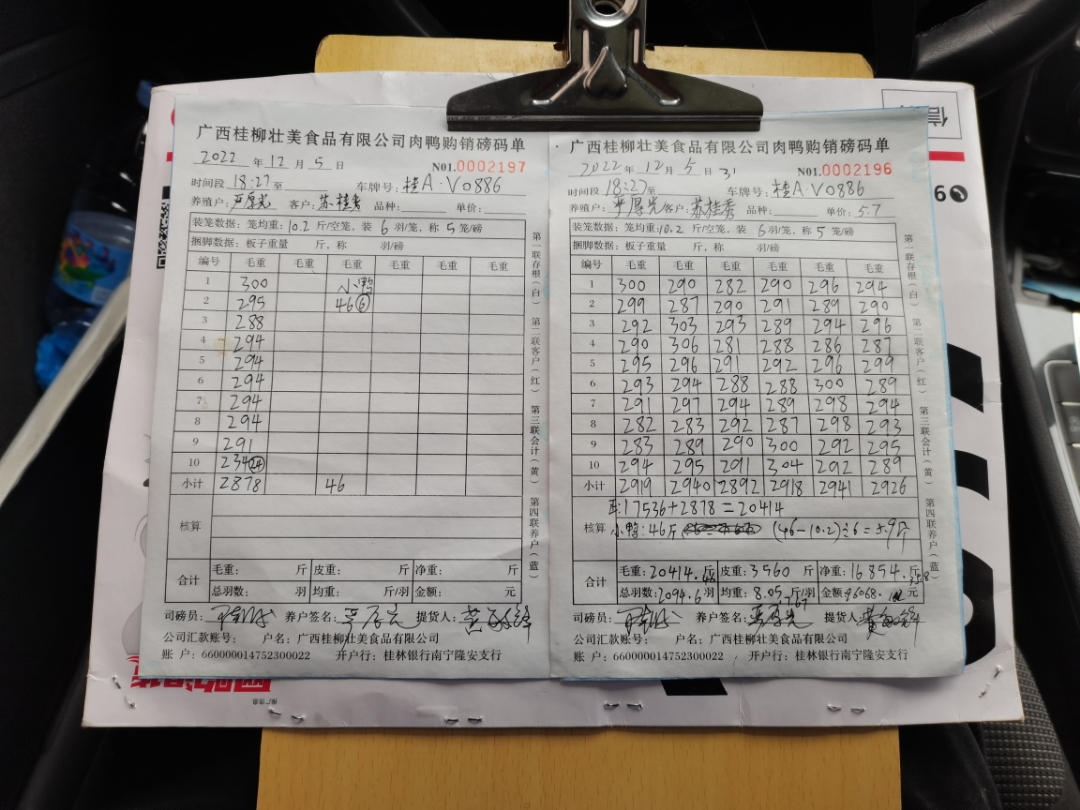 广西桂柳壮美食品有限公司肉鸭购销磅码单
2022 年 12 月 5 日 N01.0002197
时间段 18:27 至 车牌号: 桂A·V0886
养殖户: 严厚光 客户: 苏桂秀 品种: 单价:
装笼数据: 笼均重: 10.2 斤/空笼, 装 6 羽/笼, 称 5 笼/磅
捆脚数据: 板子重量 斤, 称 羽/磅
编号 毛重 毛重 毛重 毛重 毛重 毛重
1 300 小鸭
2 295 46⑥
3 288
4 294
5 294
6 294
7 294
8 294
9 291
10 234㉔
小计 2878 46
核算
合计 毛重: 斤 皮重: 斤 净重: 斤
总羽数: 羽 均重: 斤/羽 金额: 元
司磅员: 养户签名: 严厚光 提货人:
公司汇款账号: 户名: 广西桂柳壮美食品有限公司
账 户: 660000014752300022 开户行: 桂林银行南宁隆安支行
第一联存根(白) 第二联客户(红) 第三联会计(黄) 第四联养户(蓝)
广西桂柳壮美食品有限公司肉鸭购销磅码单
2022 年 12 月 5 日 31 N01.0002196
时间段 18:27 至 车牌号: 桂A·V0886
养殖户: 严厚光 客户: 苏桂秀 品种: 单价: 5.7
装笼数据: 笼均重: 10.2 斤/空笼, 装 6 羽/笼, 称 5 笼/磅
捆脚数据: 板子重量 斤, 称 羽/磅
编号 毛重 毛重 毛重 毛重 毛重 毛重
1 300 290 282 290 296 294
2 299 287 290 291 289 290
3 292 303 293 289 294 296
4 290 306 281 288 286 287
5 295 296 291 292 296 299
6 293 294 288 288 300 289
7 291 297 294 289 298 294
8 282 283 292 287 298 293
9 283 289 290 300 292 295
10 294 295 291 304 292 289
小计 2919 2940 2892 2918 2941 2926
17536+2878=20414
核算 小鸭: 46斤 (46-10.2)÷6=5.9斤
合计 毛重: 20414. 斤 皮重: 3560 斤 净重: 16854. 斤
总羽数: 2094.6 羽 均重: 8.05 斤/羽 金额: 96068. 元
司磅员: 养户签名: 严厚光 提货人:
公司汇款账号: 户名: 广西桂柳壮美食品有限公司
账 户: 660000014752300022 开户行: 桂林银行南宁隆安支行
第一联存根(白) 第二联客户(红) 第三联会计(黄) 第四联养户(蓝)